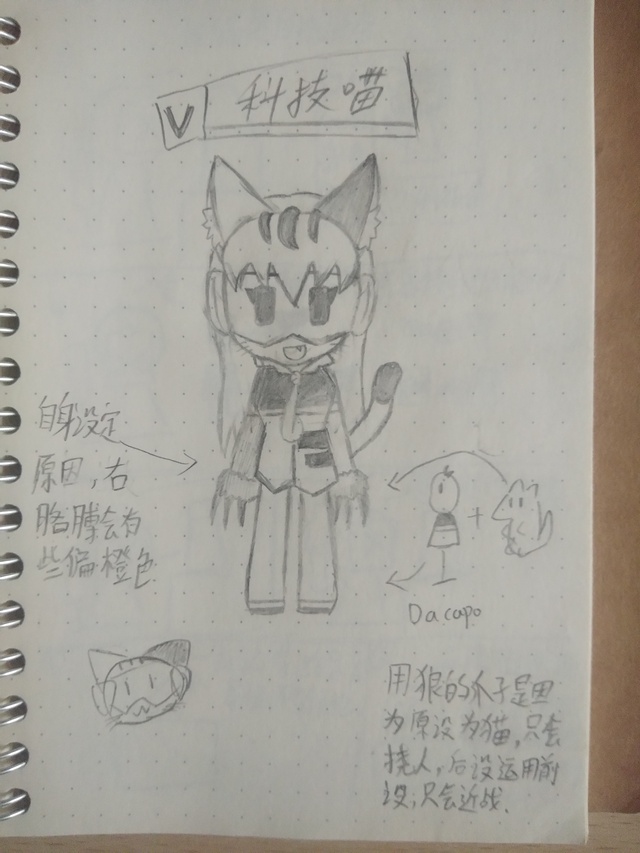 V 科技喵
自身设定
原因，右
胳膊会有
些偏橙色
+
Dacapo
用狼的爪子是因
为原设为猫，只会
挠人，后设运用前
设，只会近战.